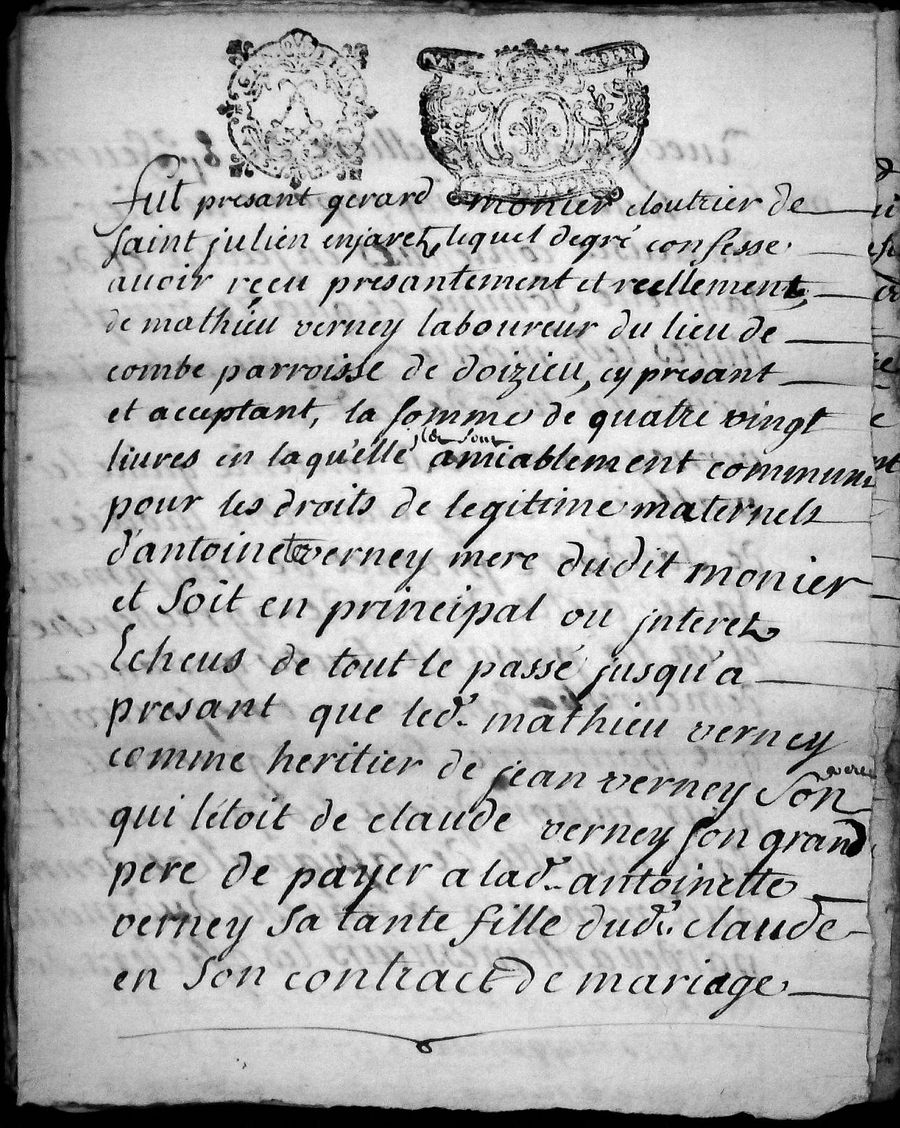 fut presant gerard monier cloutrier de
saint julien enjarez, lequel de gré confesse
auoir reçeu presantement et reellement,
de mathieu verney laboureur du lieu de
combe parroisse de doizieu, cy presant
et acceptant, la somme de quatre vingt
liures en laquelle amiablement
pour les droits de legitime maternels
d'antoinette verney mere dudit monier
et soit en principal ou jnterez
Echeus de tout le passé jusqu'a
presant que led.t mathieu verney
comme heritier de jean verney son
pere
qui l'étoit de claude verney son grand
pere de payer a lad.e antoinette
verney sa tante fille dud.t claude
en son contract de mariage